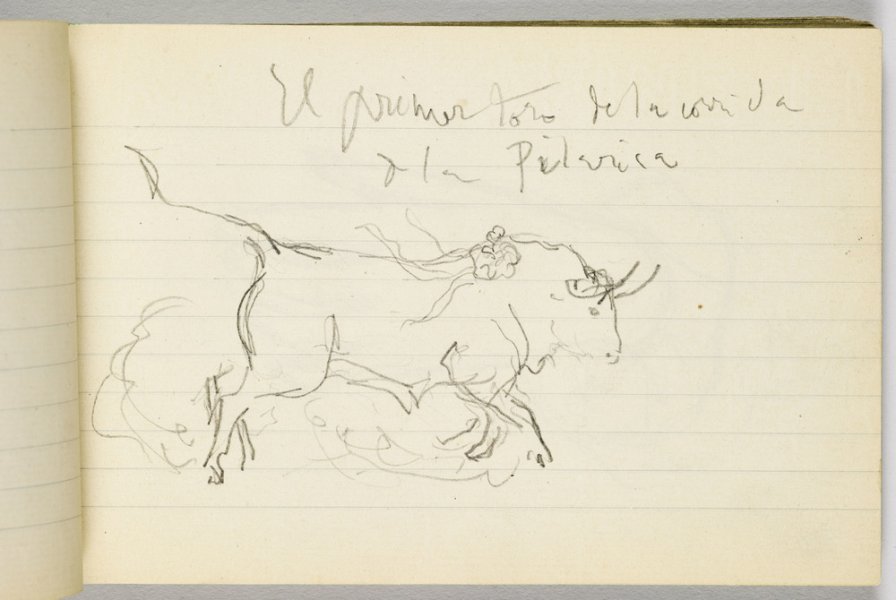 El primer toro de la corrida
d la Pilarica